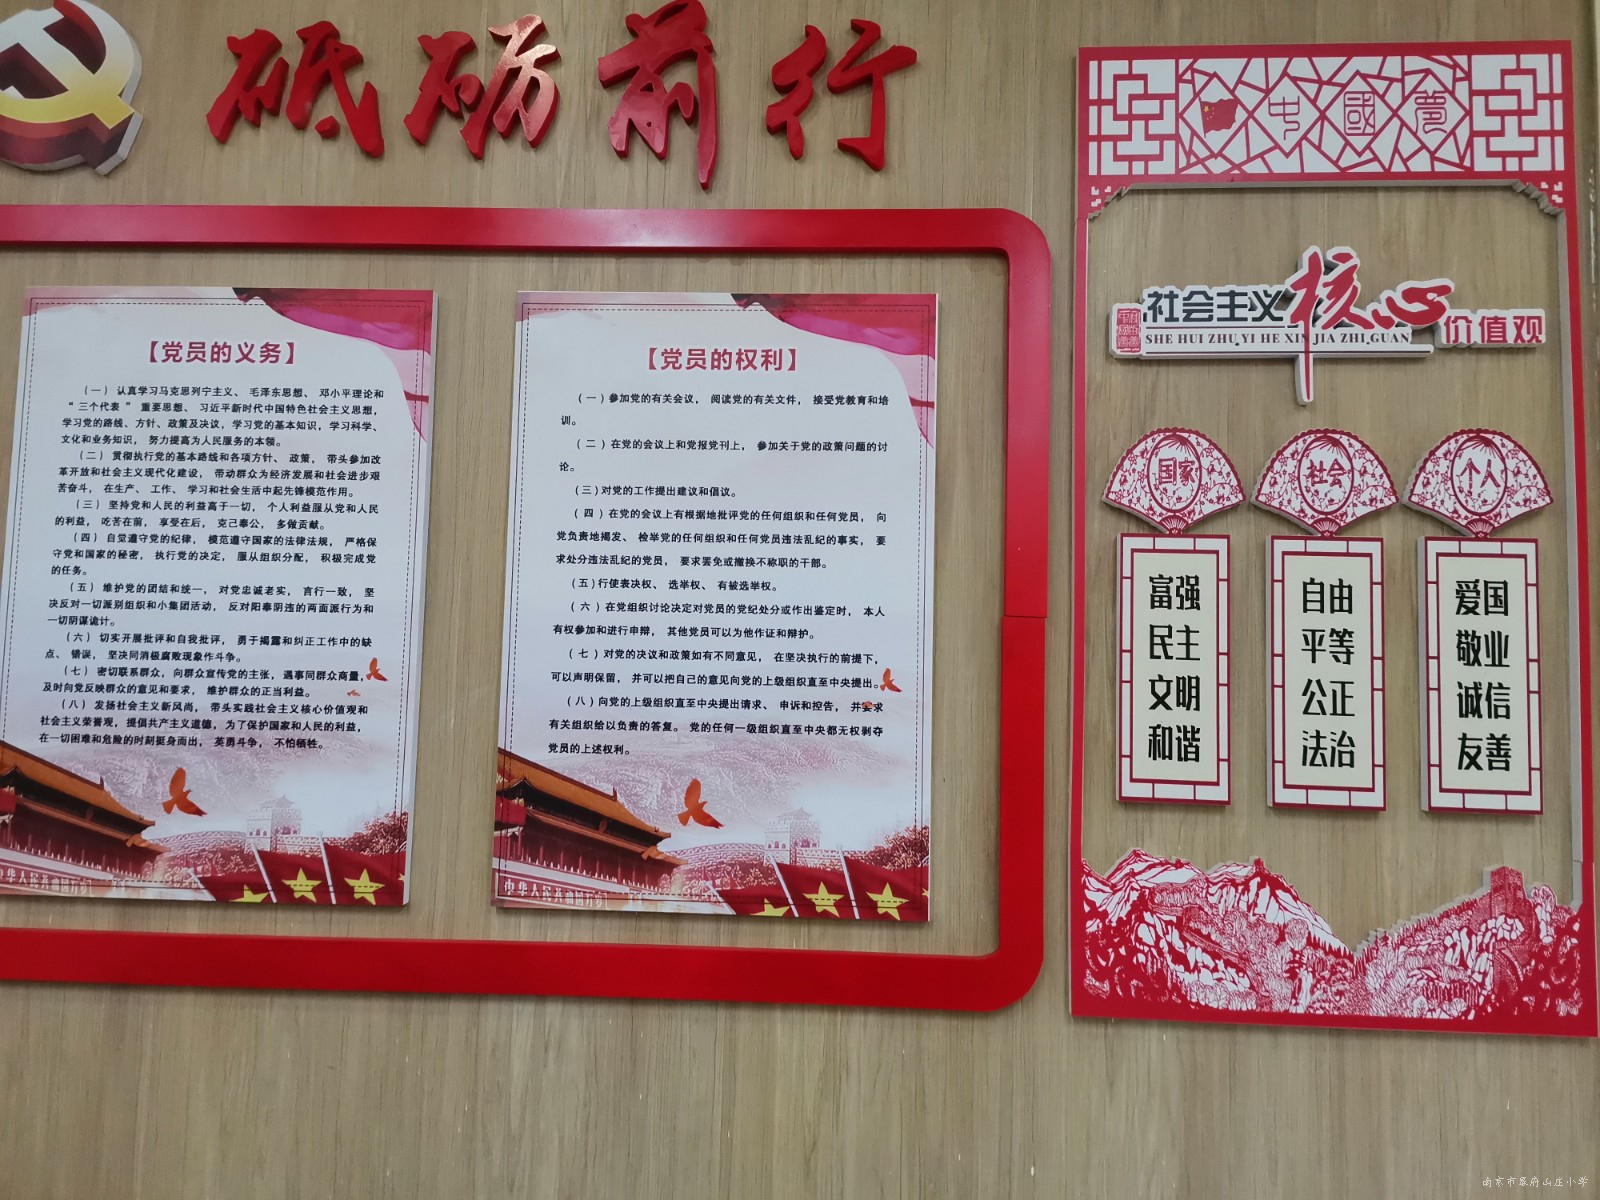 砥砺前行
【党员的义务】
（一） 认真学习马克思列宁主义、 毛泽东思想、 邓小平理论和
“ 三个代表 ” 重要思想、 习近平新时代中国特色社会主义思想，
学习党的路线、方针、政策及决议，学习党的基本知识，学习科学、
文化和业务知识， 努力提高为人民服务的本领。
（二） 贯彻执行党的基本路线和各项方针、 政策， 带头参加改
革开放和社会主义现代化建设， 带动群众为经济发展和社会进步艰
苦奋斗， 在生产、 工作、 学习和社会生活中起先锋模范作用。
（三） 坚持党和人民的利益高于一切， 个人利益服从党和人民
的利益， 吃苦在前， 享受在后， 克己奉公， 多做贡献。
（四） 自觉遵守党的纪律， 模范遵守国家的法律法规， 严格保
守党和国家的秘密， 执行党的决定， 服从组织分配， 积极完成党
的任务。
（五） 维护党的团结和统一， 对党忠诚老实， 言行一致， 坚
决反对一切派别组织和小集团活动， 反对阳奉阴违的两面派行为和
一切阴谋诡计。
（六） 切实开展批评和自我批评， 勇于揭露和纠正工作中的缺
点、 错误， 坚决同消极腐败现象作斗争。
（七） 密切联系群众，向群众宣传党的主张， 遇事同群众商量，
及时向党反映群众的意见和要求， 维护群众的正当利益。
（八） 发扬社会主义新风尚， 带头实践社会主义核心价值观和
社会主义荣誉观，提倡共产主义道德，为了保护国家和人民的利益，
在一切困难和危险的时刻挺身而出， 英勇斗争， 不怕牺牲。
【党员的权利】
（一）参加党的有关会议， 阅读党的有关文件， 接受党教育和培
训。
（二）在党的会议上和党报党刊上， 参加关于党的政策问题的讨
论。
（三）对党的工作提出建议和倡议。
（四）在党的会议上有根据地批评党的任何组织和任何党员， 向
党负责地揭发、 检举党的任何组织和任何党员违法乱纪的事实， 要
求处分违法乱纪的党员， 要求罢免或撤换不称职的干部。
（五）行使表决权、 选举权、 有被选举权。
（六）在党组织讨论决定对党员的党纪处分或作出鉴定时， 本人
有权参加和进行申辩， 其他党员可以为他作证和辩护。
（七）对党的决议和政策如有不同意见， 在坚决执行的前提下，
可以声明保留， 并可以把自己的意见向党的上级组织直至中央提出。
（八）向党的上级组织直至中央提出请求、 申诉和控告， 并要求
有关组织给以负责的答复。 党的任何一级组织直至中央都无权剥夺
党员的上述权利。
中國夢
社会主义核心价值观
SHE HUI ZHU YI HE XIN JIA ZHI GUAN
国家
富强
民主
文明
和谐
社会
自由
平等
公正
法治
个人
爱国
敬业
诚信
友善
南京市翠府山庄小学